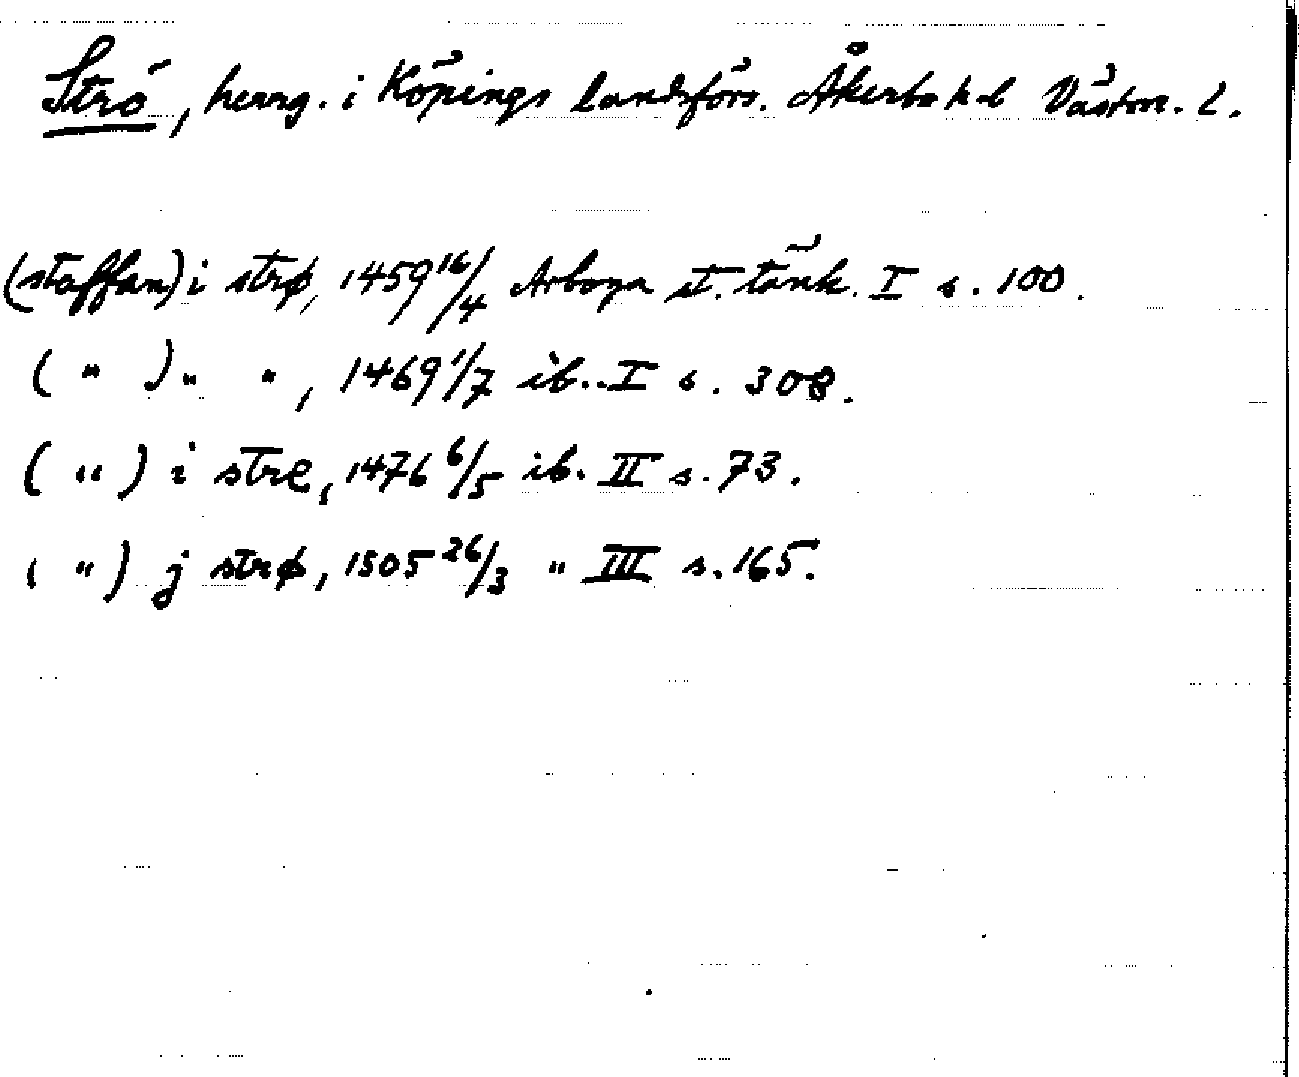 Strö, herrg. i Köpings landsförs. Åkerbo hd Västm. L.
(staffan) i strø, 1459 16/4 Arboga st. tänk. I s. 100.
( " ) " " , 1469 1/7 ib. I s. 308.
( " ) i stre, 1476 6/5 ib. II s. 73.
( " ) j strø, 1505 26/3 " III s. 165.